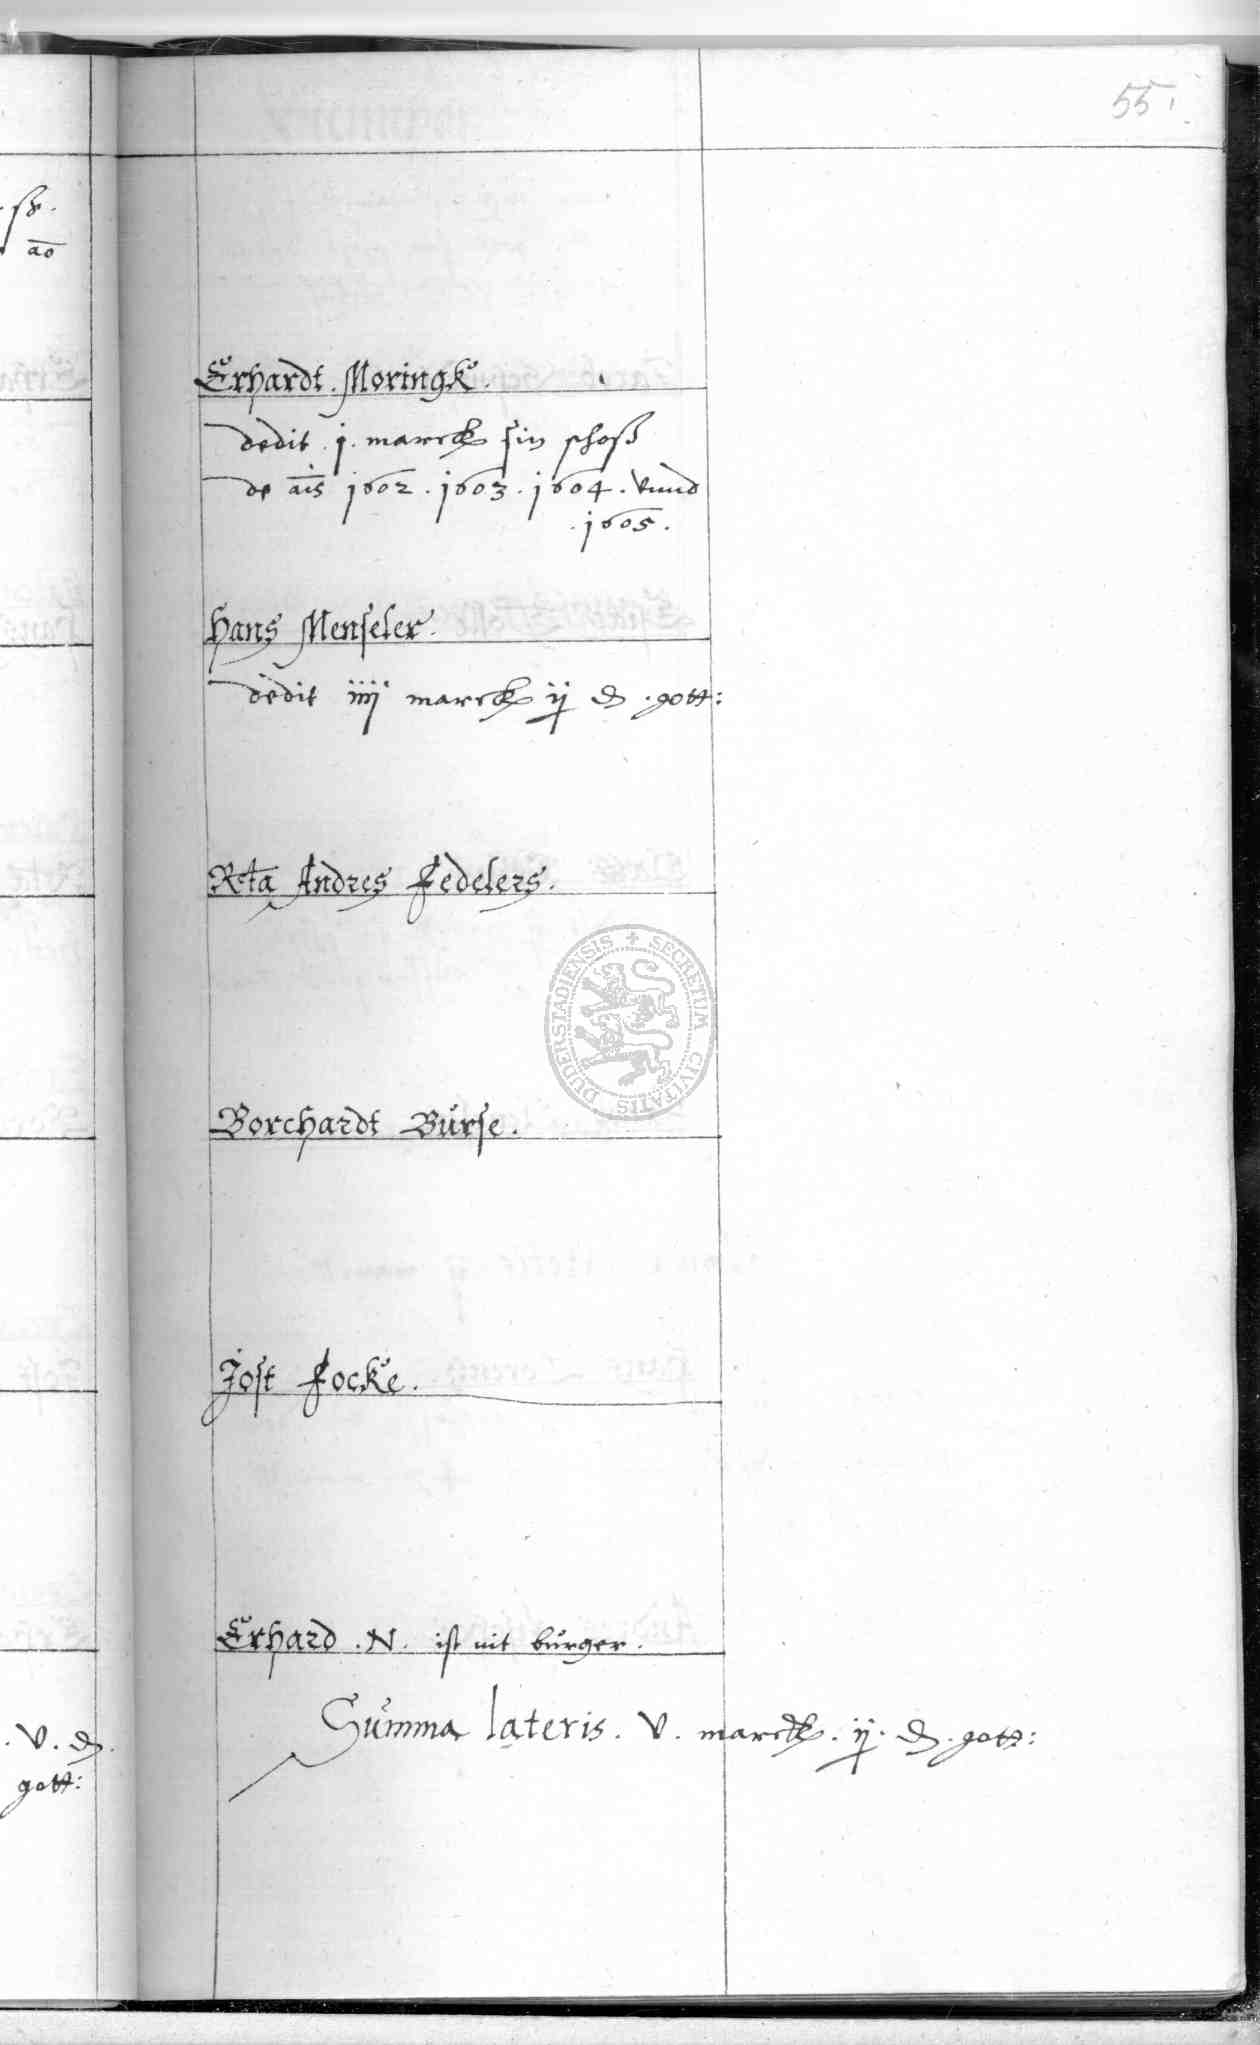 55.
ß.
ao
Erhardt. Moringk.
dedit .j. marck sin schoß
de ais 1602. 1603. 1604. vnnd
.1605.
Hans Menseler.
dedit iiij marck ij ₰ .gott:
Rcta Andres Fedelers.
SECRETUM CIVITATIS DUDERSTADIENSIS
Borchardt Bürse.
Jost Focke.
Erhard .N. ist nit bürger.
Summa lateris. V. marck. ij. ₰. gott:
. V. ₰.
gott: